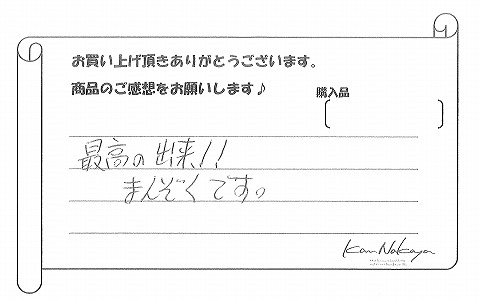 お買い上げ頂きありがとうございます。
商品のご感想をお願いします♪
購入品
最高の出来!!
まんぞくです。
Kan Nakaya